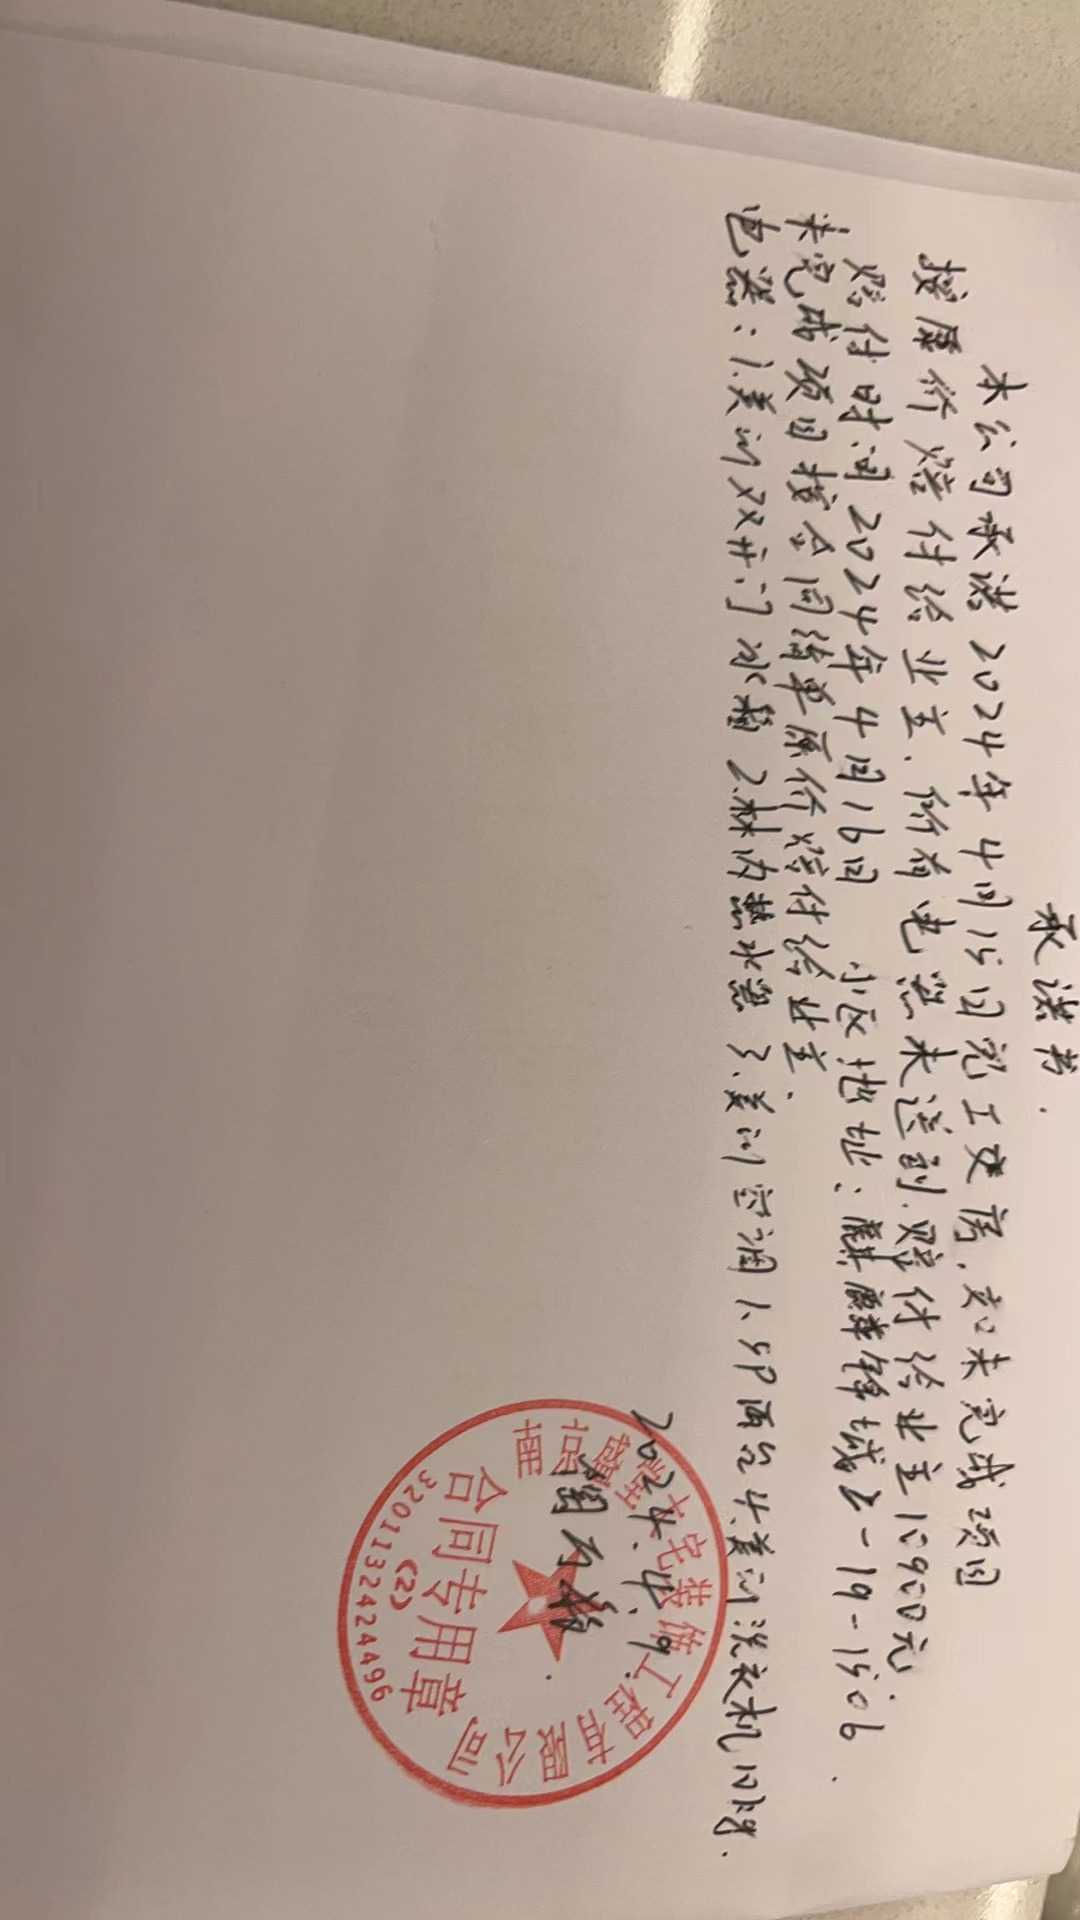 承诺书.
本公司承诺2024年4月15日完工交房,如未完成项目
按原价赔付给业主.所有电器未送到.赔付给业主10900元.
赔付时间2024年4月16日 小区地址:麒麟锋域2-19-1506.
未完成项目按合同清单原价赔付给业主.
电器:1.美的双开门冰箱 2.林内热水器 3.美的空调1.5P两台4.美的洗衣机10kg.
2024.4.9.
南京 住宅装饰工程有限公司
合同专用章
(2)
3201132424496